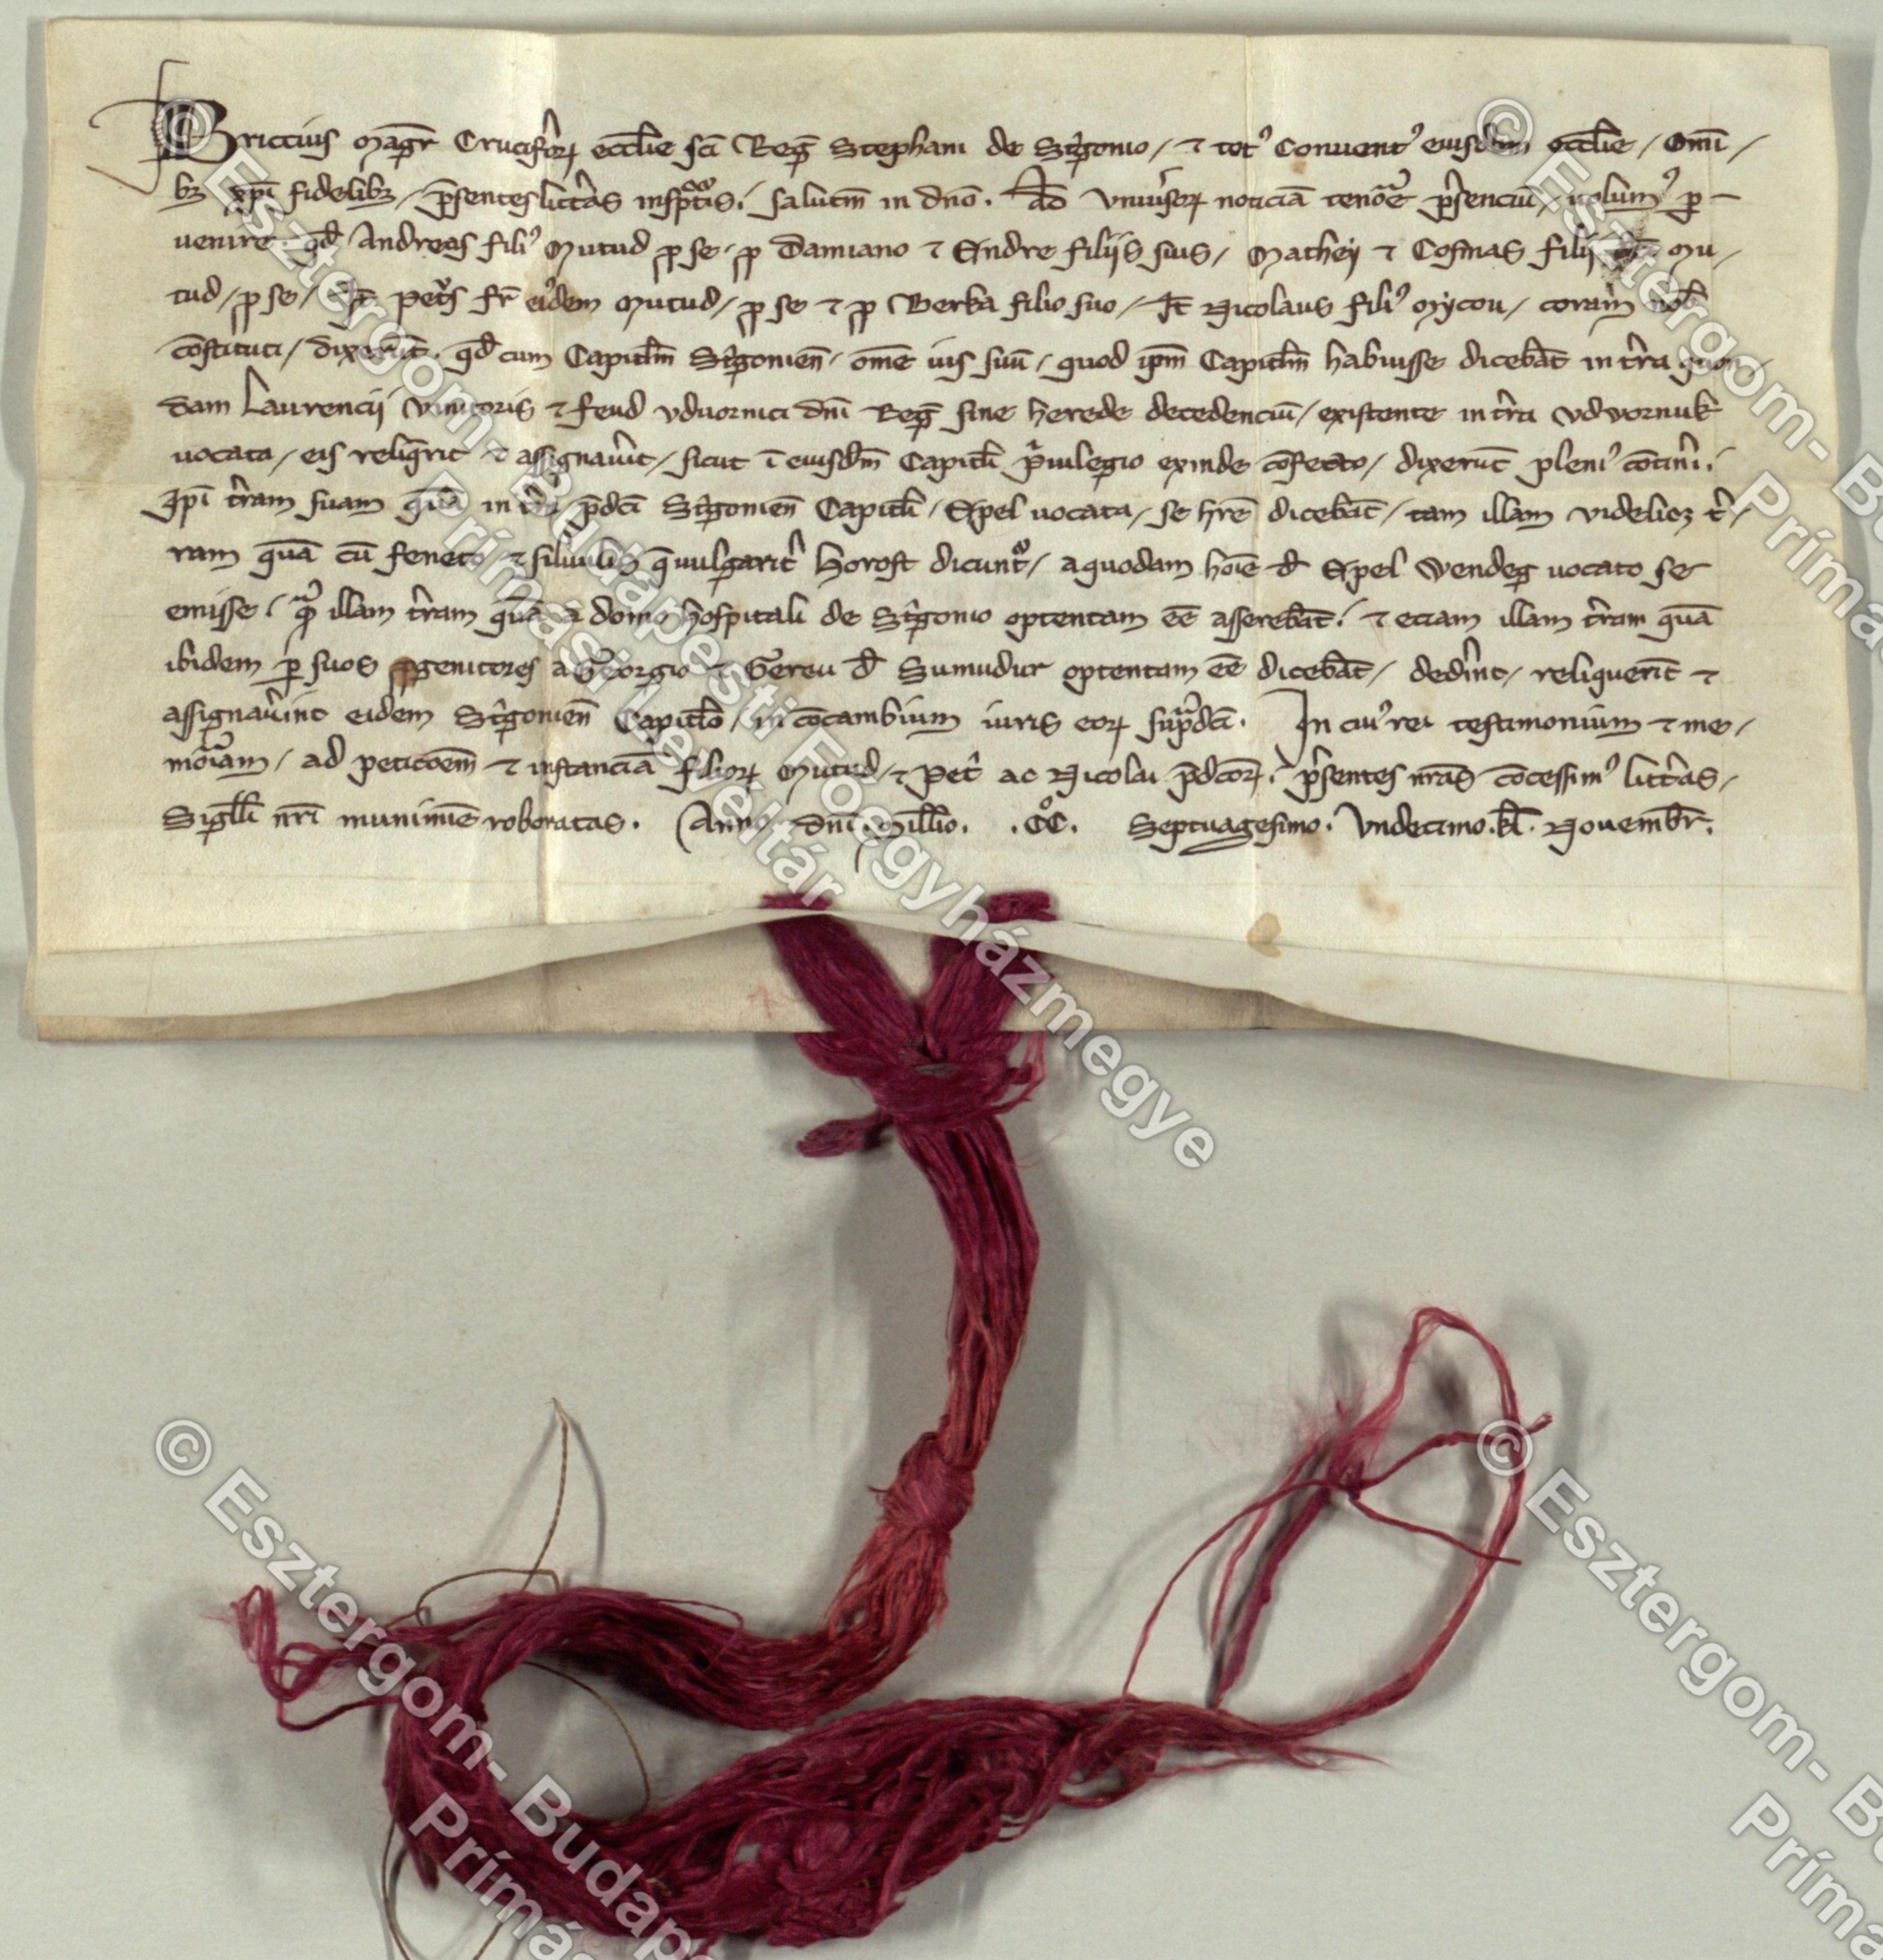 Briccius Magr̄ Crucifꝰoꝝ eccl̄ie sc̄i Reḡ Stephani de Strigonio / ⁊ totꝰ Conuentꝰ eiusdem eccl̄ie / Omni /
bꝫ xp̄i fidelibꝫ / p̄sentes litt̓as insp̄cͭis / salutem in dn̄o . Ad vniu̓soꝝ noticiā tenore p̓senciū / uolumꝰ ꝑ –
uenire . qd̄ Andreas filiꝰ Mutud ꝓ se / ꝓ Damiano ⁊ Endre filijs suis / Mathey ⁊ Cosmas filij Mu /
tud / ꝓ se / It̄ Pet̓s fr̄ eiꝰdem Mutud / ꝓ se ⁊ ꝓ Berka filio suo / It̄ Nicolaus filiꝰ Mycou / coram nob̄
cōstituti / dixerūt . qd̄ cum Capitl̄m St̓gonien̄ / om̄e ius suū / quod ip̄m Capitl̄m habuisse dicebāt in t̓ra quon /
dam Laurencij vinitoris ⁊ feud vduornici dn̄i Reḡ sine herede decedenciū / existente in t̓ra vduornuk
uocata / eis reliq̄rit ⁊ assignau̓it / sicut ī eiusdm̄ Capitl̄i p̓uilegio exinde cōfecto / dixerūt pleniꝰ cōtin̓i .
Ip̄i t̓ram suam quā in t̓ra p̄dc̄i St̓gonien̄ Capitl̄i / Apel uocata / se hr̄e dicebāt / tam illam videlicꝫ t̓ /
ram quā cū feneto ⁊ siluulis q̄ uulgarit̓ horost dicunt̓ / a quodam hoīe d̄ Apel Wendeg uocato se
emisse / qͣ illam t̓ram quā a domo hospitali de St̓gonio optentam eē asserebāt / ⁊ etiam illam t̓ram quā
ibidem ꝑ suos ꝓgenitores a Georgio ⁊ Gereu d̄ Sumudur optentam eē dicebāt / ded̓int / reliquerīt ⁊
assignau̓int eidem St̓gonien̄ Capitl̄o / in cōcambium iuris eoꝝ sup̓dc̄i . In cuiꝰ rei testimonium ⁊ me /
moͥam / ad peticoēm ⁊ instanciā filioꝝ Mutud / ⁊ Pet̓ ac Nicolai p̄dc̄oꝝ / p̓sentes nr̄as cōcessimꝰ litt̓as /
Sigll̄i nr̄i munimīe roboratas . Anno dn̄i Mill̄io . .CͦC. Septuagesimo . Vndecimo . kl̄ . Nouembr̄ .
© Esztergom- Budapesti Főegyházmegye
Prímási Levéltár
© Esztergom- B
Príma
© Esztergom- Budap
Prímás
© Esztergom- B
Príma